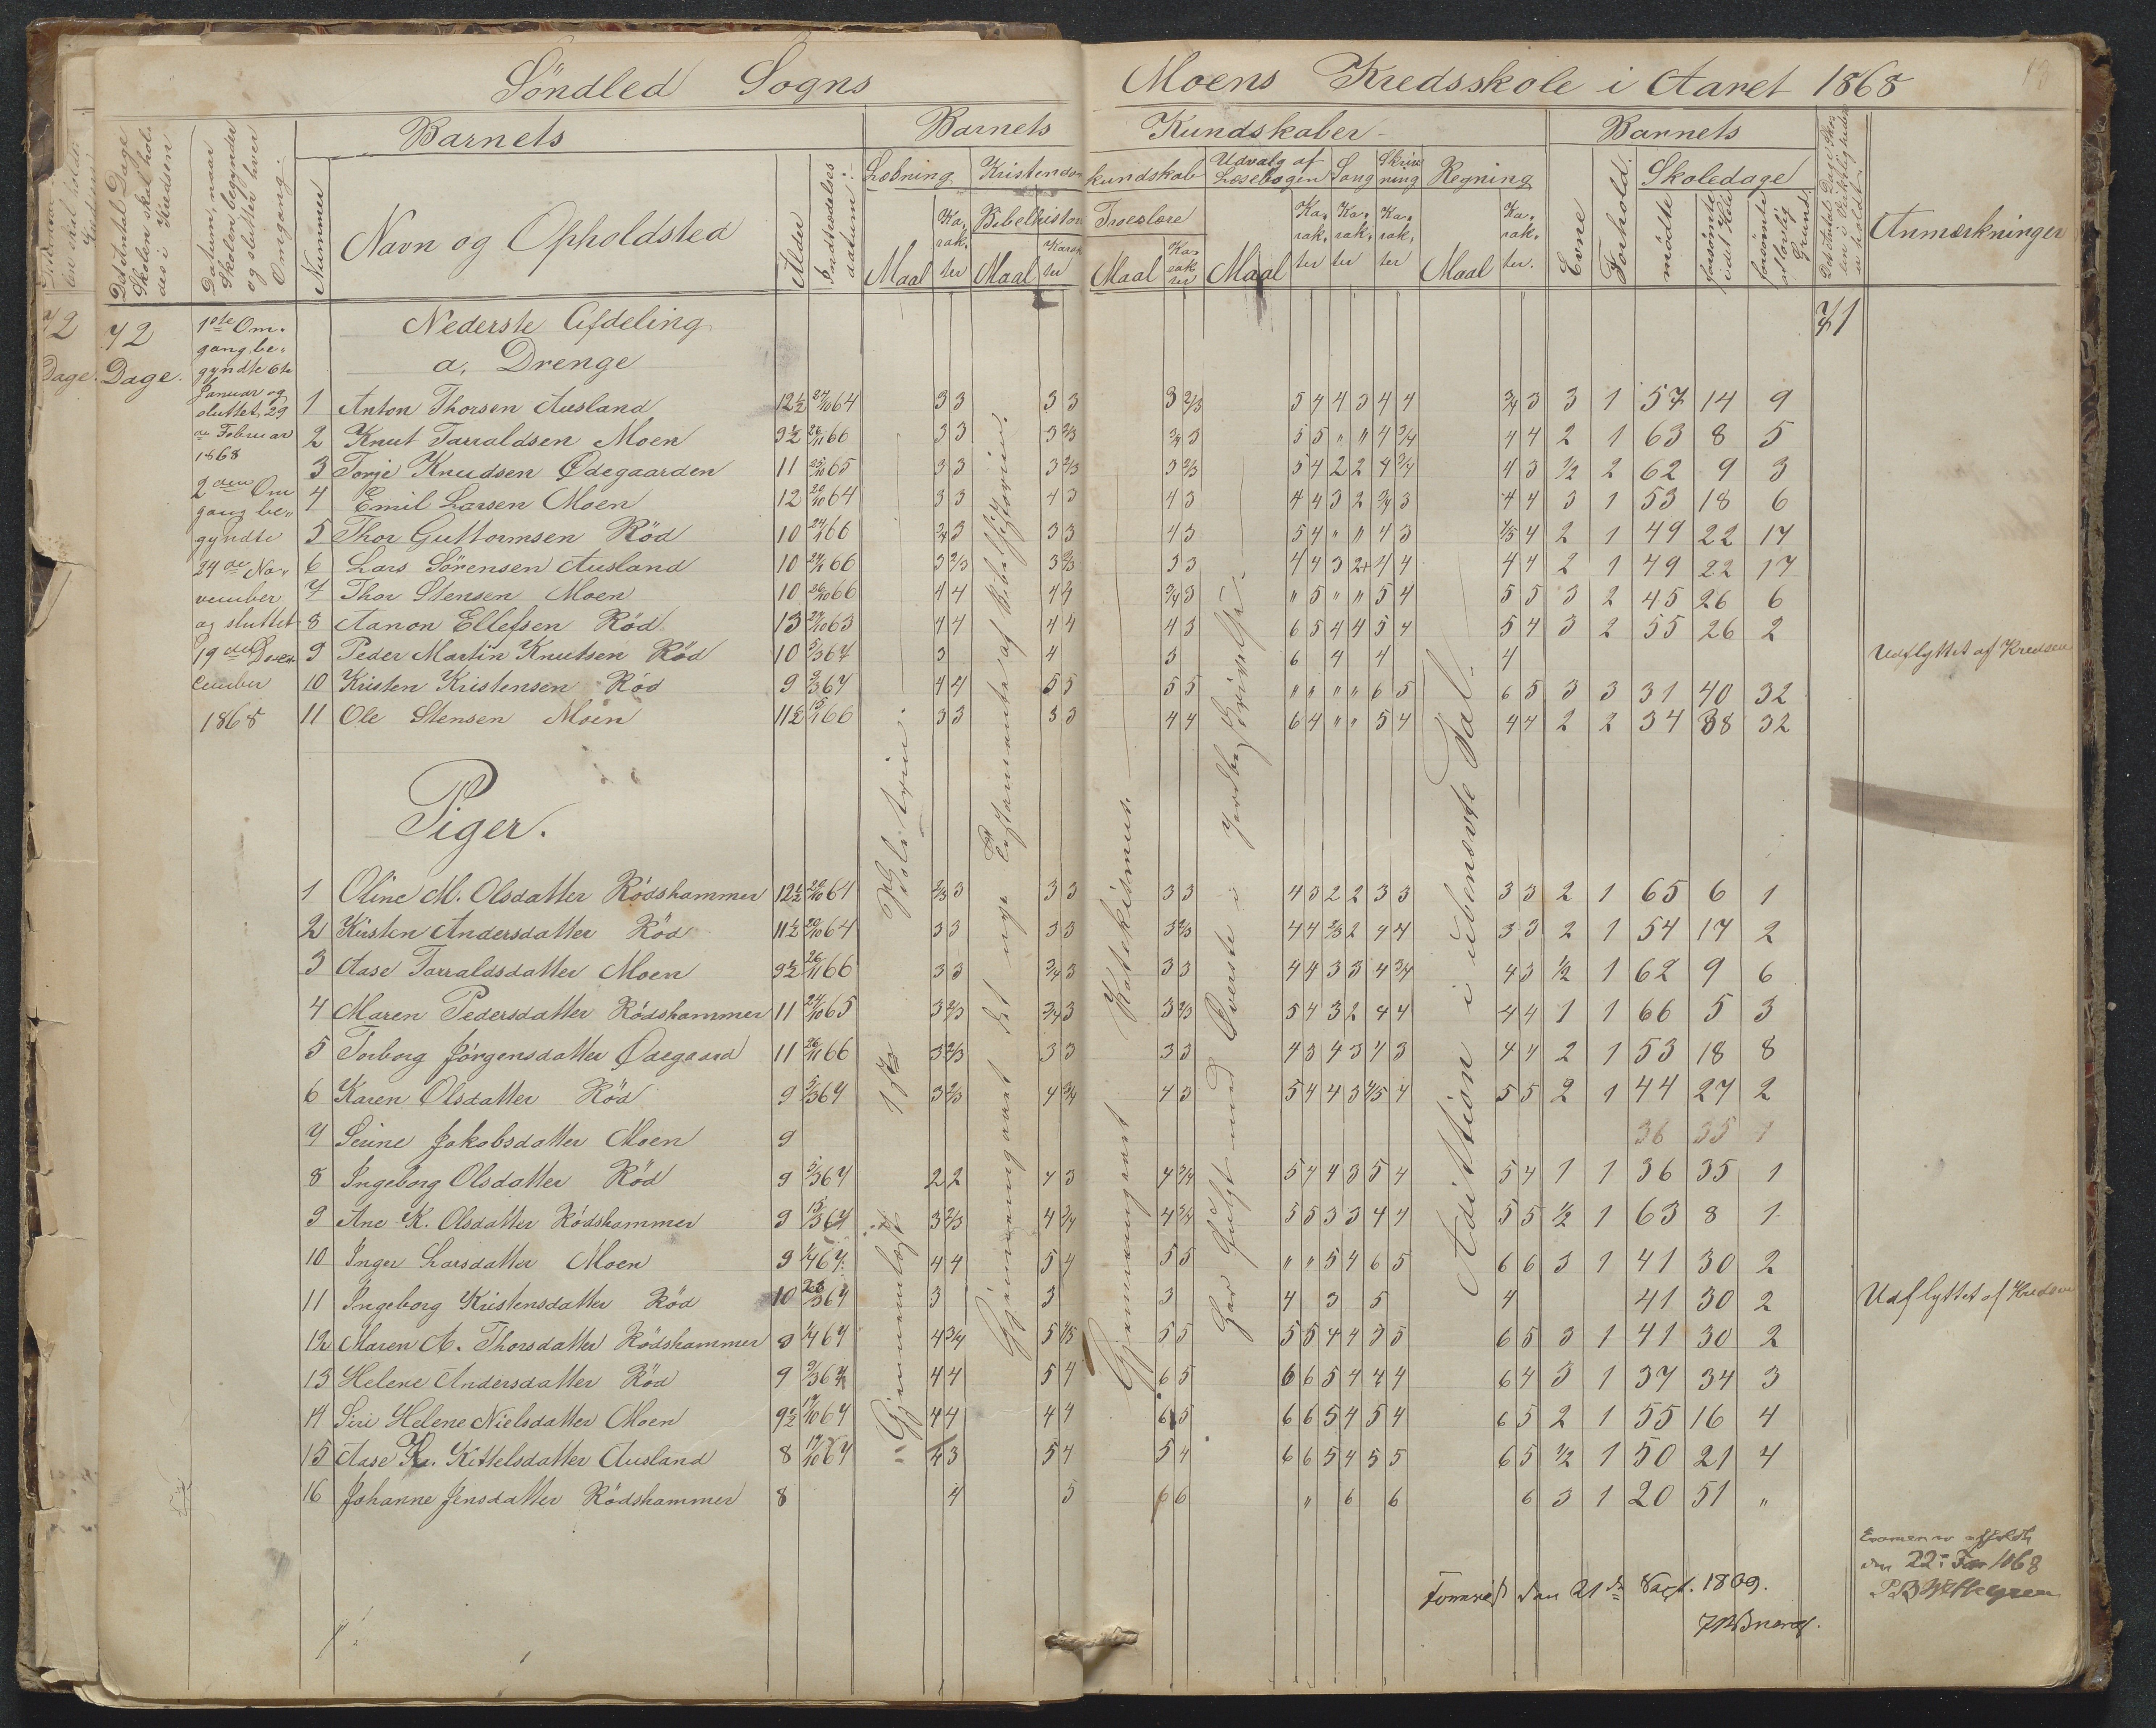 Söndled Sogns Moens Kredsskole i Aaret 1868
Barnets Barnets Kundskaber Barnets
Det Antal Dage Skolen skal holdes i Kredsen
Datum, naar Skolen begynder og slutter hver Omgang.
Nummer
Navn og Opholdsted
Alder
Indtrædelses datum
Læsning Kristendoms kundskab Udvalg af Læsebogen Sang Skrivning Regning
Bibelhistorie Troeslære
Maal Karakter Maal Karakter Maal Karakter Maal Karakter Karakter Karakter Maal Karakter
Evne
Forhold.
Skoledage
mødte
forsømte i det Hele
forsømte af lovlig Grund
Anmærkninger
72
Dage.
72
Dage.
1ste Om.
gang be"
gyndte 6te
Januar og
sluttet 29
de Februar
1868
2den Om
gang be"
gyndte
24de No"
vember
og sluttet
19de De
cember
1868
Nederste Afdeling
71
a, Drenge
1 Anton Thorsen Ausland 12½ 24/10 64 3 3 3 3 3 2/3 5 4 4 3 4 4 3/4 3 3 1 57 14 9
2 Knut Tarraldsen Moen 9½ 26/11 66 3 3 3 2/3 3/4 3 5 5 " " 4 3/4 4 4 2 1 63 8 5
3 Torje Knudsen Ødegaarden 11 25/10 65 3 3 3 2/3 3 2/3 5 4 2 2 4 3/4 4 3 1/2 2 62 9 3
4 Emil Larsen Moen 12 20/10 64 3 3 4 3 4 3 4 4 3 2 3/4 3 4 4 3 1 53 18 6
5 Thor Guttormsen Röd 10 24/1 66 3/4 3 3 3 4 3 5 4 " " 4 3 4/5 4 2 1 49 22 17
6 Lars Sörensen Ausland 10 24/1 66 3 2/3 3 2/3 3 3 4 4 3 2+ 4 4 4 4 2 1 49 22 17
7 Thor Stensen Moen 10 26/10 66 4 4 4 4 3/4 3 " 5 " " 5 4 5 5 3 2 45 26 6
8 Aanon Ellefsen Röd 13 27/10 63 4 4 4 4 4 3 6 5 4 4 5 4 5 4 3 2 55 26 2
9 Peder Martin Knutsen Röd 10 5/3 67 3 4 3 6 4 4 4 Udflyttet af Kredsen
10 Kristen Kristensen Röd 9 9/3 67 4 4 5 5 5 5 " " " " 6 5 6 5 3 3 31 40 32
11 Ole Stensen Moen 11½ 15/1 66 3 3 3 3 4 4 6 4 " " 5 4 4 4 2 2 34 38 32
Piger.
1 Oline M. Olsdatter Rödshammer 12½ 22/10 64 2/3 3 3 3 3 3 4 3 2 2 3 3 3 3 2 1 65 6 1
2 Kirsten Andersdatter Röd 11½ 20/10 64 3 3 3 3 3 2/3 4 4 2/3 2 4 4 3 3 2 1 54 17 2
3 Aase Tarraldsdatter Moen 9½ 26/11 66 3 3 3/4 3 3 3 4 4 3 3 4 3/4 4 3 1/2 1 62 9 6
4 Maren Pedersdatter Rödshammer 11 24/10 65 3 2/3 3/4 3 3 2/3 5 4 3 2 4 4 4 4 1 1 66 5 3
5 Torborg Jörgensdatter Ødegaard 11 26/11 66 3 2/3 3 3 3 3 4 3 4 3 4 3 4 4 2 1 53 18 8
6 Karen Olsdatter Röd 9 5/3 67 3 2/3 4 3/4 4 3 5 4 4 3 4/5 4 5 5 2 1 44 27 2
7 Serine Jakobsdatter Moen 9 36 35 1
8 Ingeborg Olsdatter Röd 9 5/3 67 2 2 4 3 4 3/4 5 4 4 3 5 4 5 4 1 1 36 35 1
9 Ane K. Olsdatter Rödshammer 9 13/3 67 3 2/3 4 3/4 4 3/4 5 5 3 3 4 4 5 5 1/2 1 63 8 1
10 Inger Larsdatter Moen 9 1/4 67 4 4 5 4 5 5 " " 5 4 6 5 6 6 3 1 41 30 2
11 Ingeborg Kristensdatter Röd 10 28/3 67 3 3 3 4 3 5 4 41 30 2 Udflyttet af Kredsen
12 Maren A. Thorsdatter Rödshammer 8 1/4 67 4 3/4 5 4/5 5 5 5 5 4 4 5 5 6 5 3 1 41 30 2
13 Helene Andersdatter Röd 9 9/3 67 4 4 5 4 6 5 6 6 5 4 4 4 6 4 3 1 37 34 3
14 Siri Helene Nielsdatter Moen 9½ 17/10 67 4 4 4 4 6 5 6 6 5 4 5 4 6 5 2 1 55 16 4
15 Aase K. Kittelsdatter Ausland 8 19/10 67 4 3 5 4 5 4 6 6 5 4 5 5 6 5 1/2 1 50 21 4
16 Johanne Jensdatter Rödshammer 8 4 5 6 6 " 6 6 6 3 1 20 51 "
Gjennemlæst 1ste
Gjennemgaaet det nye Testamente af Bibelhistorien.
Gjennemgaaet Katekismus.
Har fulgt med Øverste i Jordbeskrivelse
Addition i ubenevnte Tal.
Examen afholdt
den 22 1868
den 21de Sept. 1869.